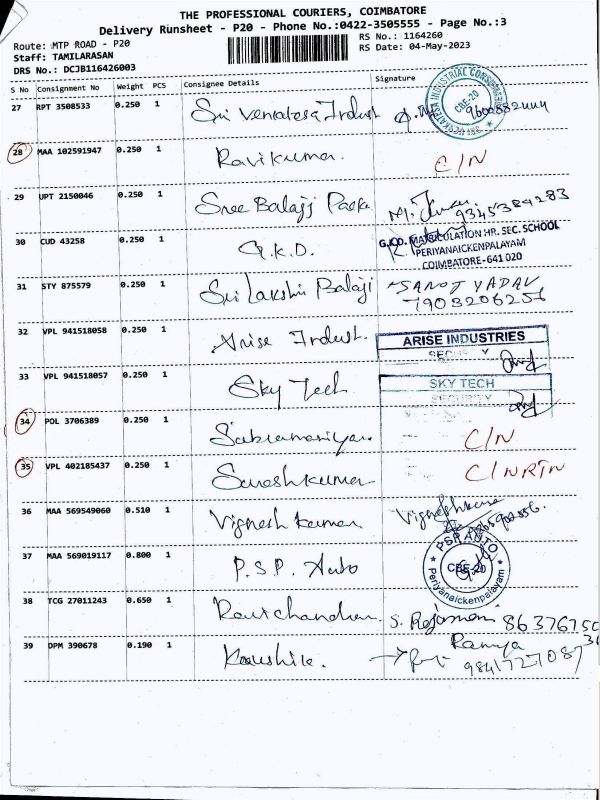 THE PROFESSIONAL COURIERS, COIMBATORE
Delivery Runsheet - P20 - Phone No.:0422-3505555 - Page No.:3
Route: MTP ROAD - P20
RS No.: 1164260
Staff: TAMILARASAN
RS Date: 04-May-2023
DRS No.: DCJB116426003
S No Consignment No Weight PCS Consignee Details Signature
27 RPT 3508533 0.250 1 Sri Venkatesa Indust
28 MAA 102591947 0.250 1 Ravikumar. C/N
29 UPT 2150046 0.250 1 Sree Balaji Pack 9345384283
30 CUD 43258 0.250 1 G.K.D. MATRICULATION HR. SEC. SCHOOL
PERIYANAICKENPALAYAM
COIMBATORE-641 020
31 STY 875579 0.250 1 Sri Lakshmi Balaji SANOJ YADAV
7903206256
32 VPL 941518058 0.250 1 Arise Indust. ARISE INDUSTRIES
33 VPL 941518057 0.250 1 Sky Tech SKY TECH
SECURITY
34 POL 3706389 0.250 1 Subramaniyan C/N
35 VPL 402185437 0.250 1 Sureshkumar C/NRTN
36 MAA 569549060 0.510 1 Vignesh kumar Vigneshkumar
37 MAA 569019117 0.800 1 P.S.P. Auto PSP AUTO
CBE-20
Periyanaickenpalayam
38 TCG 27011243 0.650 1 Ravichandran S. 8637675031
39 DPM 390678 0.190 1 Koushik. Ramya
9841727087